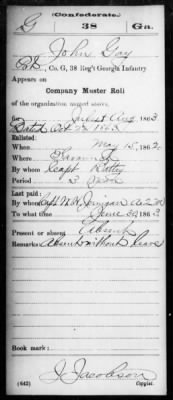 Confederate.
G 38 Ga.
John Gay
Co. G, 38 Reg't Georgia Infantry
Appears on
Company Muster Roll
of the organization named above,
for July & Aug, 1863
Dated Oct 1863
Enlisted:
When May 15, 1862
Where
By whom Capt
Period 3
Last paid:
By whom Capt
To what time June 30, 1863
Present or absent Absent
Remarks: Absent without leave
Book mark:
J Jacobson
(642) Copyist.